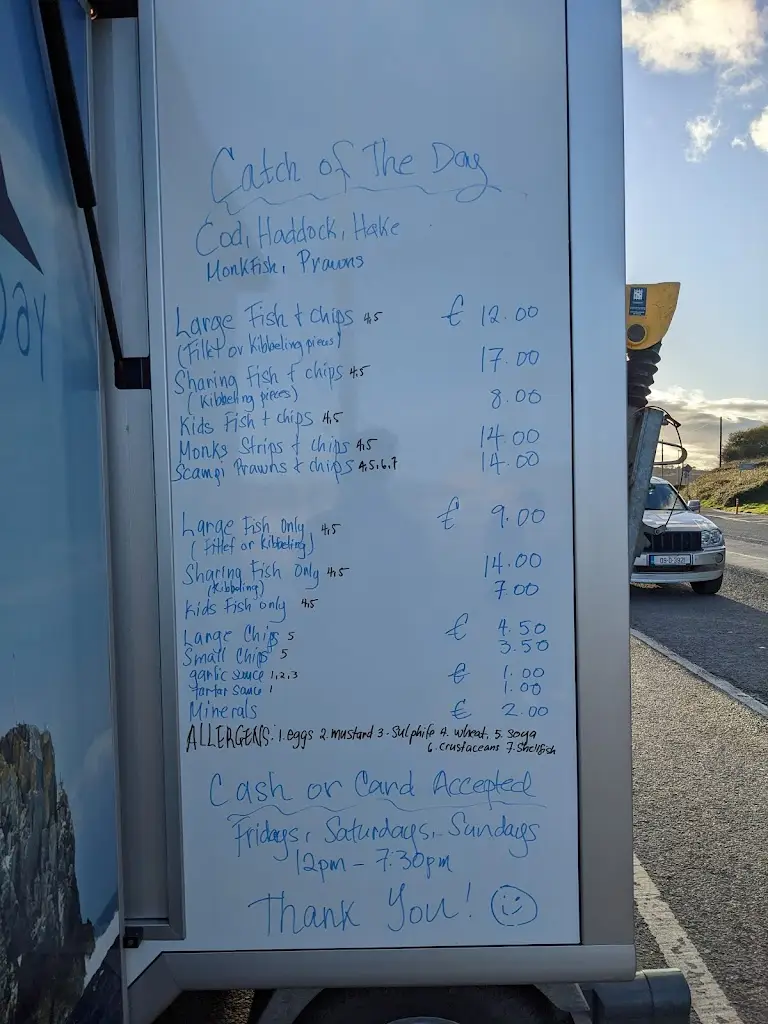 Day
Catch of The Day
Cod, Haddock, Hake
Monkfish, Prawns
Large Fish + chips 4,5 € 12.00
(Fillet or Kibbeling pieces)
Sharing Fish + chips 4,5 17.00
(Kibbeling pieces)
Kids Fish + chips 4,5 8.00
Monks Strips + chips 4,5 14.00
Scampi Prawns + chips 4,5,6,7 14.00
Large Fish Only 4,5 € 9.00
(Fillet or Kibbeling)
Sharing Fish Only 4,5 14.00
(Kibbeling)
Kids Fish only 4,5 7.00
Large Chips 5 € 4.50
Small Chips 5 3.50
garlic sauce 1,2,3 € 1.00
tartar sauce 1 1.00
Minerals € 2.00
ALLERGENS: 1. eggs 2. mustard 3. Sulphite 4. wheat, 5. soya
6. crustaceans 7. Shellfish
Cash or Card Accepted
Fridays, Saturdays, Sundays
12pm - 7:30pm
Thank You!